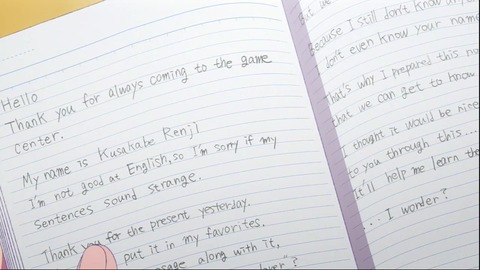 Hello
Thank you for always coming to the game
center.
My name is Kusakabe Renji
I'm not good at English, so I'm sorry if my
sentences sound strange.
Thank you for the present yesterday.
put it in my favorites.
along with it,
But
Because I still don't know
don't even know your name
That's why I prepared this
that we can get to know
I thought it would be nice
to you through this...
it'll help me learn the
... I wonder?